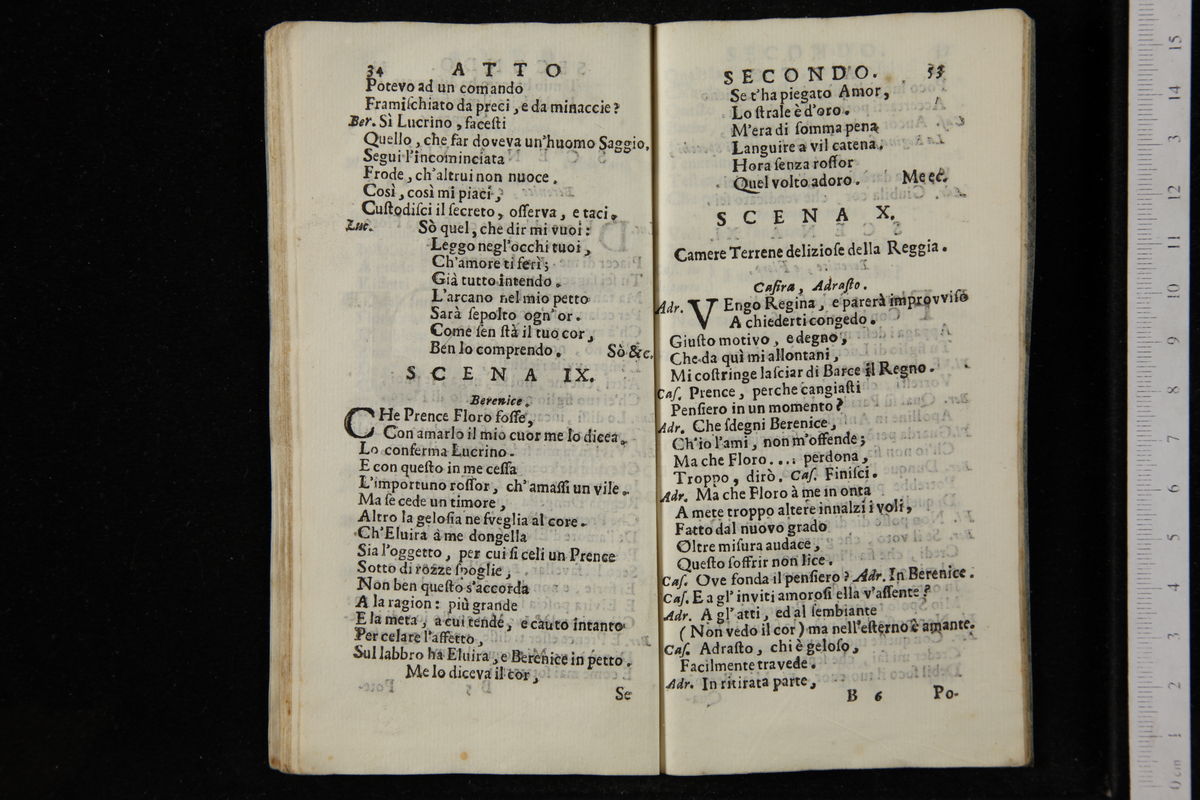 34 ATTO
Potevo ad un comando
Framiſchiato da preci, e da minaccie?
Ber. Sì Lucrino, faceſti
Quello, che far doveva un'huomo Saggio,
Segui l'incominciata
Frode, ch'altrui non nuoce.
Così, così mi piaci,
Cuſtodiſci il ſecreto, oſſerva, e taci.
Luc. Sò quel, che dir mi vuoi:
Leggo negl'occhi tuoi,
Ch'amore ti ferì;
Già tutto intendo.
L'arcano nel mio petto
Sarà ſepolto ogn'or.
Come ſen ſtà il tuo cor,
Ben lo comprendo. Sò &c.
SCENA IX.
Berenice.
CHe Prence Floro foſſe,
Con amarlo il mio cuor me lo dicea.
Lo conferma Lucrino.
E con queſto in me ceſſa
L'importuno roſſor, ch'amaſſi un vile.
Ma ſe cede un timore,
Altro la geloſia ne ſveglia al core.
Ch'Eluira à me dongella
Sia l'oggetto, per cui ſi celi un Prence
Sotto di rozze ſpoglie,
Non ben queſto s'accorda
A la ragion: più grande
E la meta, a cui tende, e cauto intanto
Per celare l'affetto,
Sul labbro ha Eluira, e Berenice in petto.
Me lo diceva il cor,
Se
SECONDO. 53
Se t'ha piegato Amor,
Lo ſtrale è d'oro.
M'era di ſomma pena
Languire a vil catena.
Hora ſenza roſſor
Quel volto adoro. Me ec.
SCENA X.
Camere Terrene delizioſe della Reggia.
Caſira, Adraſto.
Adr. VEngo Regina, e parerà improvviſo
A chiederti congedo.
Giuſto motivo, e degno,
Che da quì mi allontani,
Mi coſtringe laſciar di Barce il Regno.
Caſ. Prence, perche cangiaſti
Penſiero in un momento?
Adr. Che ſdegni Berenice,
Ch'io l'ami, non m'offende;
Ma che Floro.... perdona,
Troppo, dirò. Caſ. Finiſci.
Adr. Ma che Floro à me in onta
A mete troppo altere innalzi i voli,
Fatto dal nuovo grado
Oltre miſura audace,
Queſto ſoffrir non lice.
Caſ. Ove fonda il penſiero? Adr. In Berenice.
Caſ. E a gl'inviti amoroſi ella v'aſſente?
Adr. A gl'atti, ed al ſembiante
(Non vedo il cor) ma nell'eſterno è amante.
Caſ. Adraſto, chi è geloſo,
Facilmente travede.
Adr. In ritirata parte,
B 6 Po-